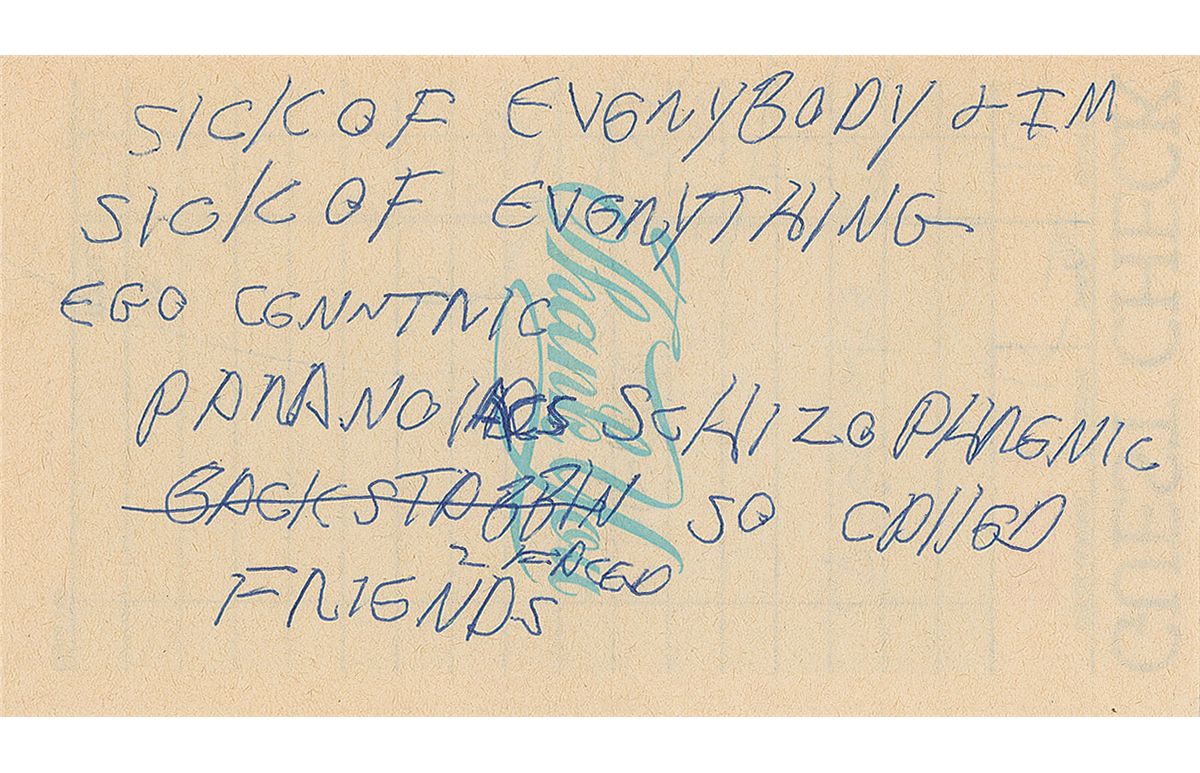 SICK OF EVERYBODY & IM
SICK OF EVERYTHING
EGO CENNTRIC
PARANOIACS SCHIZOPHRENIC
BACKSTABBIN SO CALLED
2 FACED
FRIENDS
Thank You
GUEST CHECK